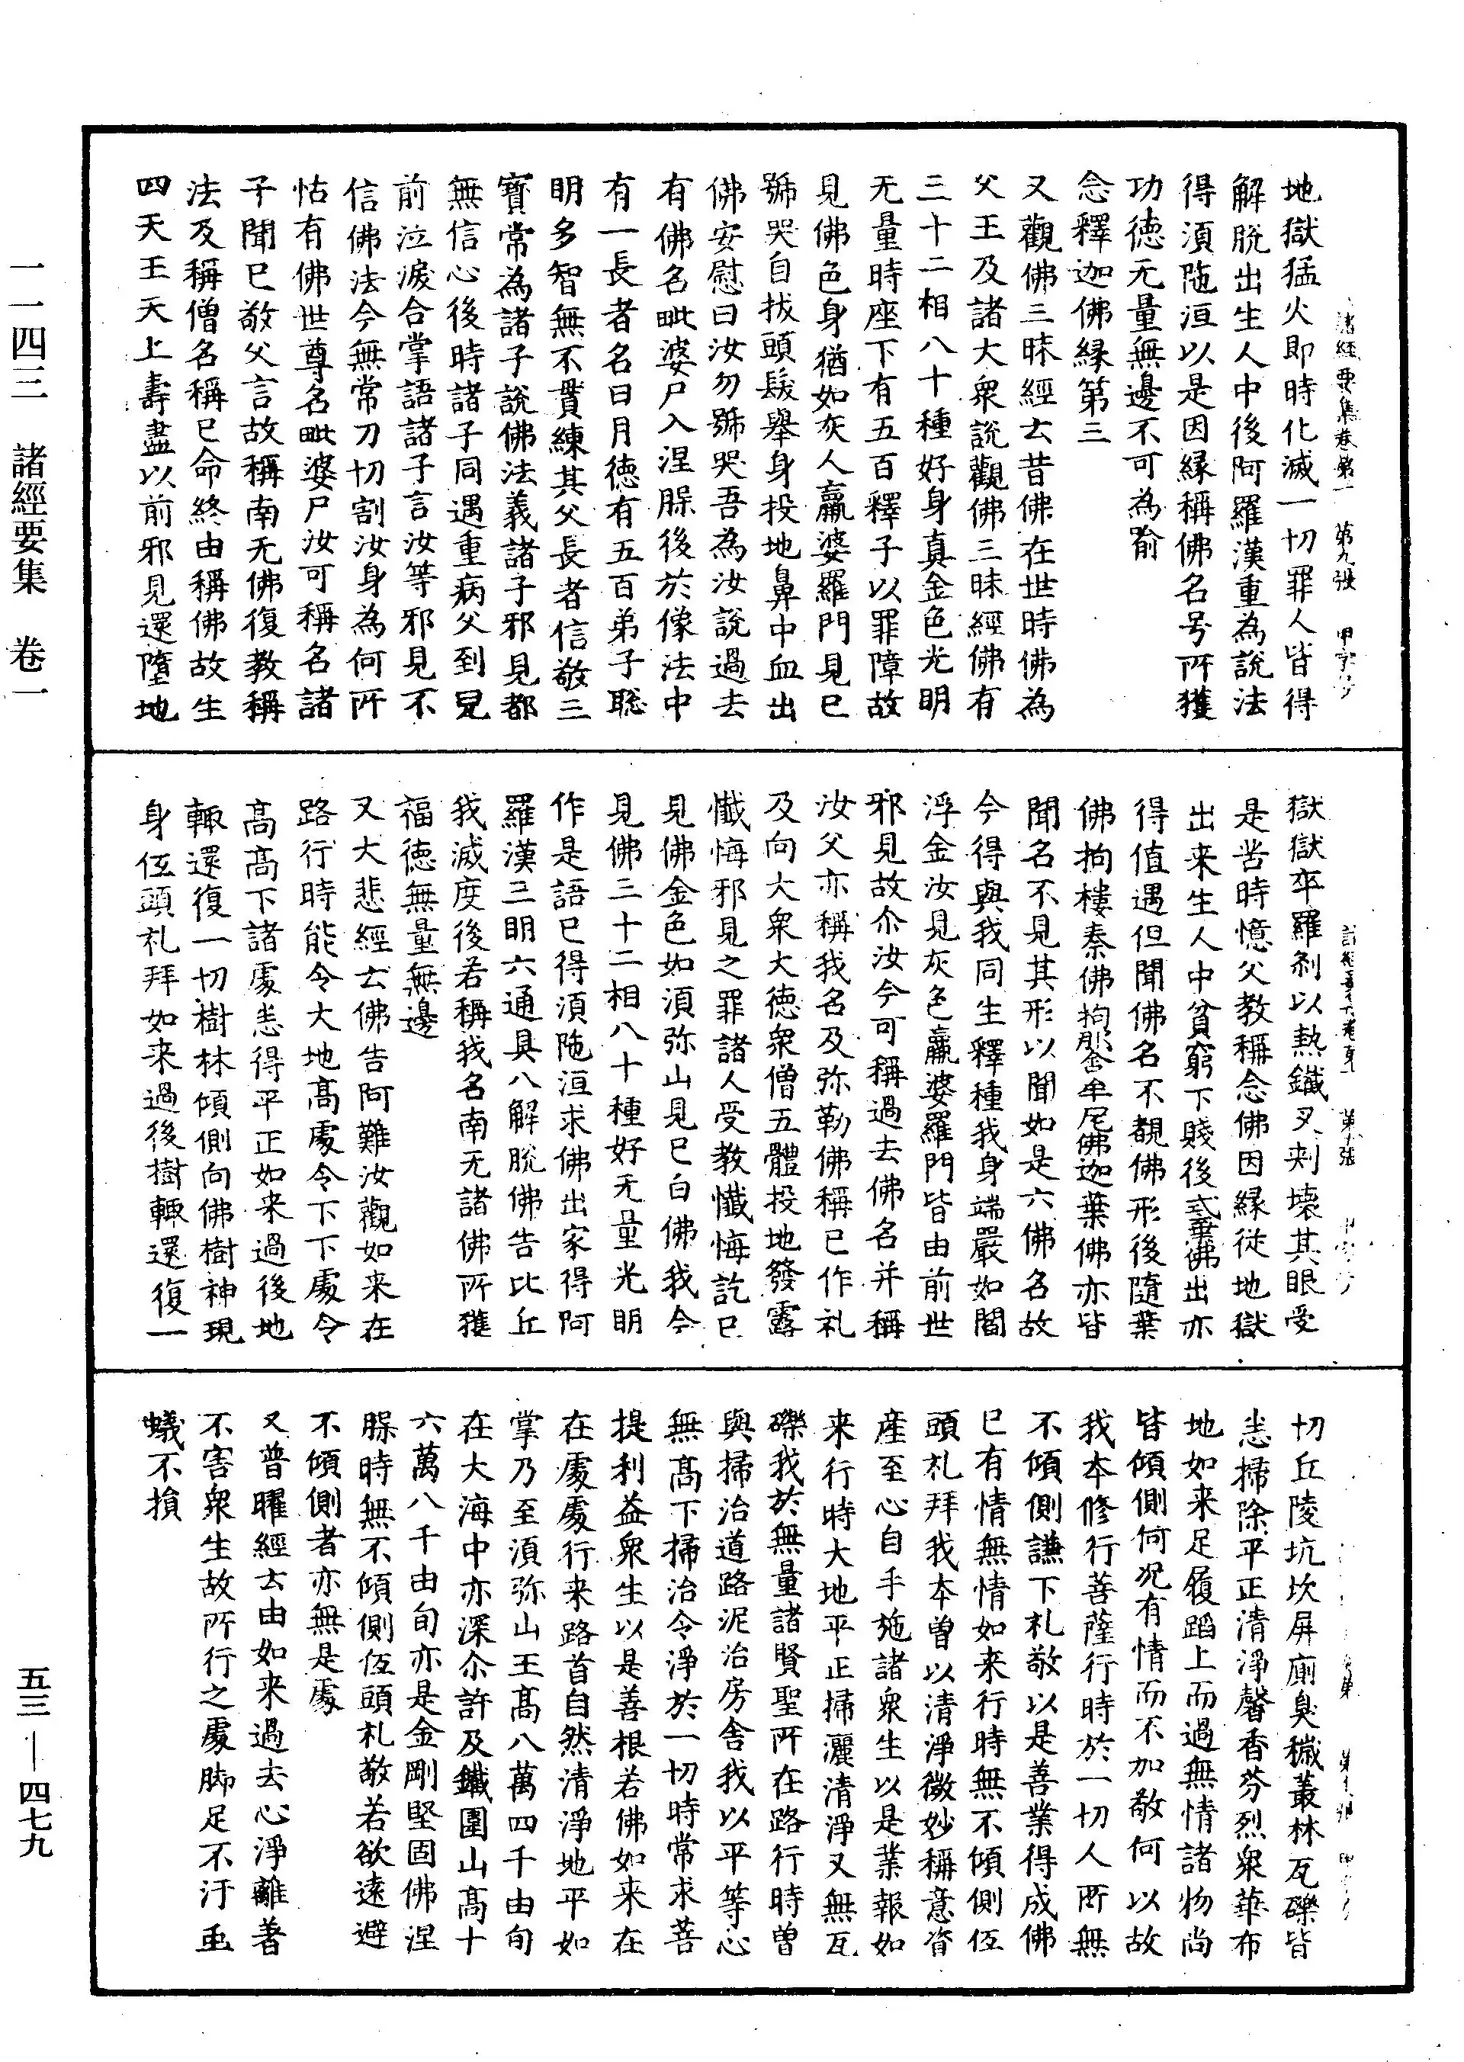 一一四三　諸經要集　卷一
地獄猛火即時化滅一切罪人皆得
解脫出生人中後阿羅漢重為說法
得湏陁洹以是因緣稱佛名号所獲
功德无量無邊不可為喻
念釋迦佛緣第三
又觀佛三昧經云昔佛在世時佛為
父王及諸大衆說觀佛三昧經佛有
三十二相八十種好身真金色光明
无量時座下有五百釋子以罪障故
見佛色身猶如灰人羸婆羅門見已
號哭自拔頭髮舉身投地鼻中血出
佛安慰曰汝勿號哭吾為汝說過去
有佛名毗婆尸入涅槃後於像法中
有一長者名日月德有五百弟子聡
明多智無不貫練其父長者信敬三
寶常為諸子說佛法義諸子邪見都
無信心後時諸子同遇重病父到兒
前泣淚合掌語諸子言汝等邪見不
信佛法今無常刀切割汝身為何所
怙有佛世尊名毗婆尸汝可稱名諸
子聞已敬父言故稱南无佛復教稱
法及稱僧名稱已命終由稱佛故生
四天王天上壽盡以前邪見還墮地
獄獄卒羅剎以熱鐵叉刺壞其眼受
是苦時憶父教稱念佛因緣從地獄
出来生人中貧窮下賤後式棄佛出亦
得值遇但聞佛名不覩佛形後隨葉
佛拘樓秦佛拘那含牟尼佛迦葉佛亦皆
聞名不見其形以聞如是六佛名故
今得與我同生釋種我身端嚴如閻
浮金汝見灰色羸婆羅門皆由前世
邪見故尒汝今可稱過去佛名并稱
汝父亦稱我名及弥勒佛稱已作礼
及向大衆大德衆僧五體投地發露
懺悔邪見之罪諸人受教懺悔訖已
見佛金色如湏弥山見已白佛我今
見佛三十二相八十種好无量光明
作是語已得湏陁洹求佛出家得阿
羅漢三明六通具八解脫佛告比丘
我滅度後若稱我名南无諸佛所獲
福德無量無邊
又大悲經云佛告阿難汝觀如来在
路行時能令大地髙處令下下處令
髙髙下諸處悉得平正如来過後地
輙還復一切樹林傾側向佛樹神現
身伍頭礼拜如来過後樹輙還復一
切丘陵坑坎屏廁臭穢叢林瓦礫皆
悉掃除平正清淨馨香芬烈衆華布
地如来足履蹈上而過無情諸物尚
皆傾側何况有情而不加敬何以故
我本修行菩薩行時於一切人所無
不傾側謙下礼敬以是善業得成佛
已有情無情如来行時無不傾側伍
頭礼拜我本曾以清淨微妙稱意資
產至心自手施諸衆生以是業報如
来行時大地平正掃灑清淨又無瓦
礫我於無量諸賢聖所在路行時曾
與掃治道路泥治房舍我以平等心
無髙下掃治令淨於一切時常求菩
提利益衆生以是善根若佛如来在
在處處行来路首自然清淨地平如
掌乃至湏弥山王髙八萬四千由旬
在大海中亦深尒許及鐵圍山髙十
六萬八千由旬亦是金剛堅固佛涅
槃時無不傾側伍頭礼敬若欲遠避
不傾側者亦無是處
又普曜經云由如来過去心淨離著
不害衆生故所行之處脚足不汙虫
蟻不損
五三—四七九